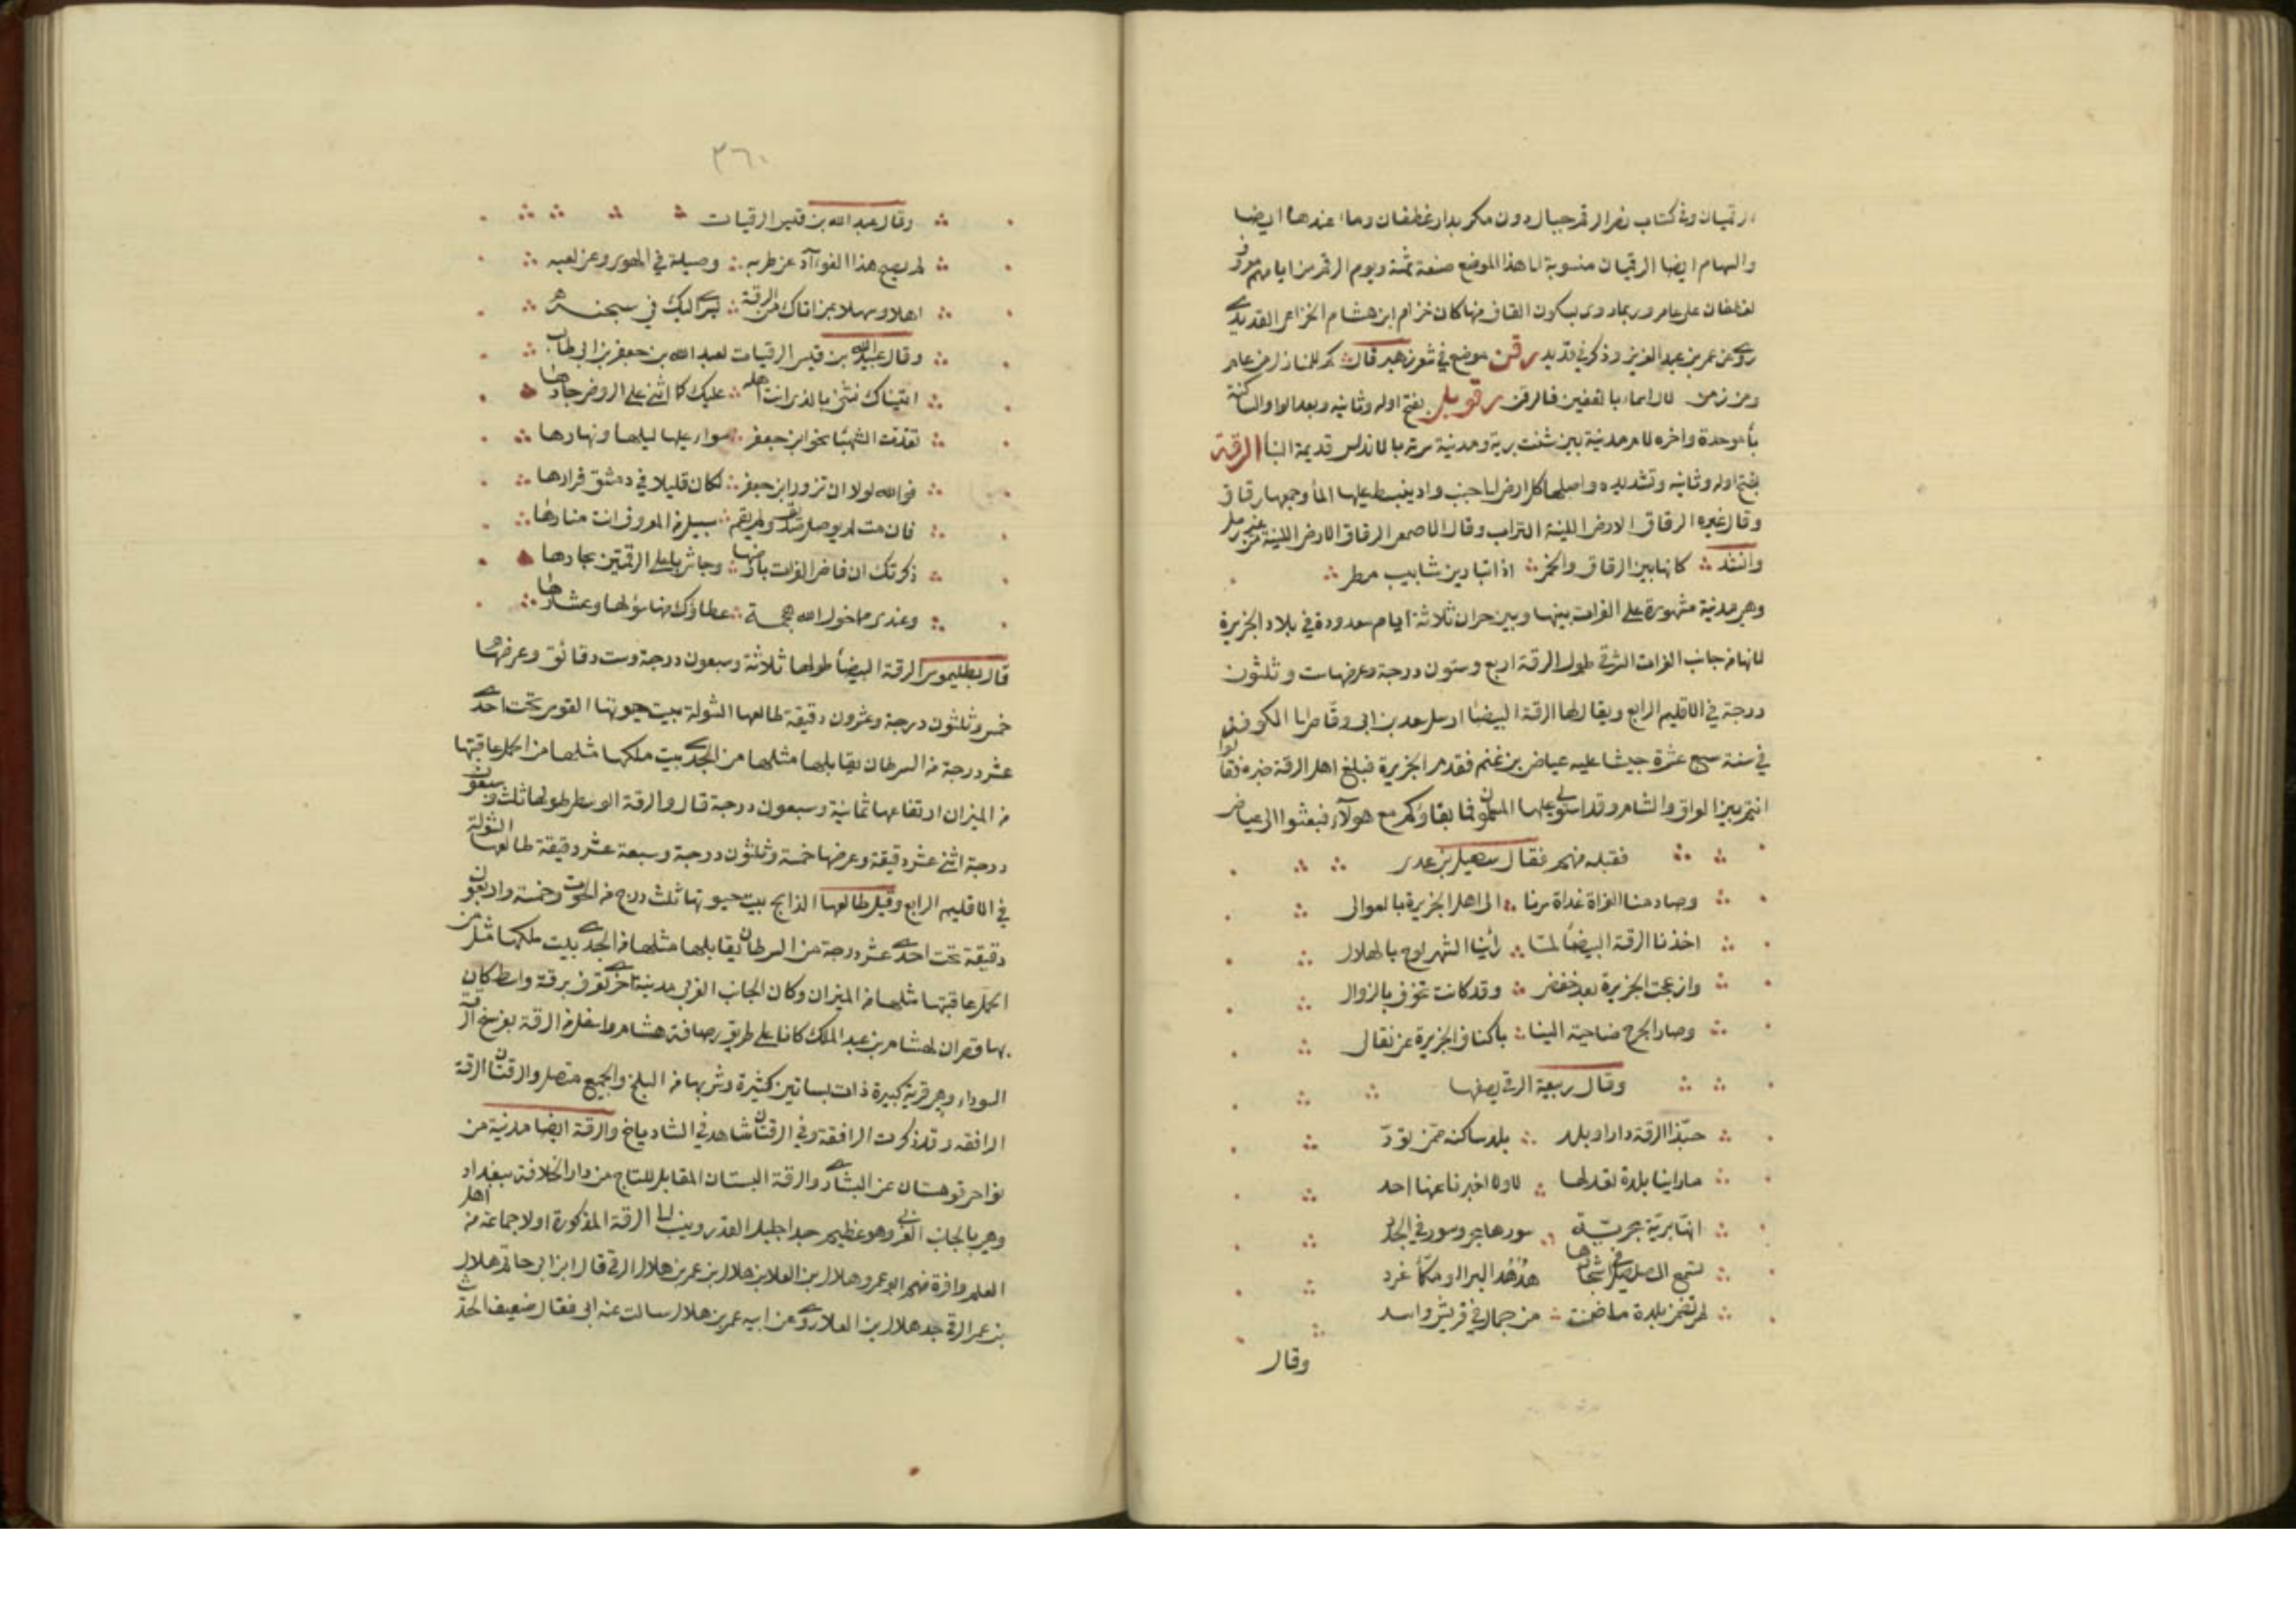 الرقميات وفي كتاب نصر الرقم جبال دون مكة بدار غطفان وماء عندها ايضا
والسهام ايضا الرقميات منسوبة الى هذا الموضع صنعة ثمة ويوم الرقم من ايامهم معروف
لغطفان على عامر وربما روى بسكون القاف منها كان حزام ابن هشام الخزاعي القديدي
روى عن عمر بن عبد العزيز وذكر في قديد رقن موضع في شعر زهير قال كم للمنازل من عام
ومن زمن لال اسماء بالقفين فالرقن رقوبل بفتح اوله وثانيه وبعد الواو الساكنة
باء موحدة واخره لام مدينة بين شنت برية ومدينة سرتة بالاندلس قديمة البنا الرقة
بفتح اوله وثانيه وتشديده واصلها كل ارض الى جنب واد ينبسط عليها الماء وجمعها رقاق
وقال غيره الرقاق الارض اللينة التراب وقال الاصمعي الرقاق الارض اللينة من غير رمل
وانشد كانها بين الرقاق والخمر اذا تبارين شابيب مطر
وهي مدينة مشهورة على الفرات بينها وبين حران ثلاثة ايام معدودة في بلاد الجزيرة
لانها من جانب الفرات الشرقي طول الرقة اربع وستون درجة وعرضها ست وثلثون
درجة في الاقليم الرابع ويقال لها الرقة البيضا ارسل سعد بن ابي وقاص والى الكوفة
في سنة سبع عشرة جيشا عليه عياض بن غنم فقدم الجزيرة فبلغ اهل الرقة خبره فقالوا
انتم بين العراق والشام وقد استولى عليها المسلمون فما بقاؤكم مع هولآء فبعثوا الى عياض
فقبله منهم فقال سهيل بن عدى
وصادمنا الغزاة غداة سرنا الى اهل الجزيرة بالعوالى
اخذنا الرقة البيضا لما رأينا الشهر لوح بالهلال
وازعجت الجزيرة بعد خفض وقد كانت تخوف بالزوال
وصار الخرج ضاحية الينا باكناف الجزيرة عن تقال
وقال ربيعة الرقي يصفها
حبذا الرقة دارا وبلد بلد ساكنه ممن تود
ما راينا بلدة تعدلها لا ولا اخبرنا عنها احد
انها برية بحرية سورها بحر وسور في الجدد
تسمع الصلصل في اشجارها هدهد البر ومكاء غرد
لم تضمن بلدة ما ضمنت من جمال في قريش واسد
وقال
٣٦٠
وقال عبد الله بن قيس الرقيات
لم يصح هذا الفوآد عن طربه وميله في الهوى وعن لعبه
اهلا وسهلا بمن اتاك من الرقة يسرى اليك في سخبه
وقال عبيد الله بن قيس الرقيات لعبد الله بن جعفر بن ابي طالب
اتيناك نثني بالذى انت اهله عليك كما اثنى على الروض جارها
تقدت الشهبا نحو ابن جعفر سواء عليها ليلها ونهارها
فوالله لولا ان تزور ابن جعفر لكان قليلا في دمشق قرارها
فان مت لم يوصل صديق ولم يقم سبيل من المعروف انت منارها
ذكرتك ان فاض الفرات بارضها وجاش باعلى الرقمتين بحارها
وعندى مما خول الله هجمة عطاؤك منها شولها وعشارها
قال بطليموس الرقة البيضأ طولها ثلاثة وسبعون درجة وست دقائق وعرضها
خمس وثلثون درجة وعشرون دقيقة طالعها الشولة بيت حيوتها القوس تحت احدى
عشر درجة من السرطان يقابلها مثلها من الجدى بيت ملكها مثلها من الحمل عاقبتها
من الميزان ارتفاعها ثمانية وسبعون درجة قال والرقة الوسطى طولها ثلث وسبعون
درجة اثنى عشر دقيقة وعرضها خمسة وثلثون درجة وسبعة عشر دقيقة طالعها الشولة
في الاقليم الرابع وقيل طالعها الذابح بيت حيوتها ثلث درج من الحوت وخمسة واربعون
دقيقة تحت احدى عشر درجة من السرطان يقابلها مثلها من الجدى بيت ملكها مثل من
الحمل عاقبتها مثلها من الميزان وكان الجانب الغربي مدينة اخرى تعرف برقة واسط كان
بها قصران لهشام بن عبد الملك كانا على طريق رصافة هشام واسفل من الرقة بفرسخ الرقة
السوداء وهي قرية كبيرة ذات بساتين كثيرة وشربها من البلخ والجميع متصل والرقتان الرقة
الرافقه وقد ذكرت الرافقة وفي الرقتان شاهد في الشاذياخ والرقة ايضا مدينة من
نواحي قوهستان عن البشارى والرقة البستان المقابل للتاج من دار الخلافة ببغداد
وهي بالجانب الغربي وهو عظيم جدا جليل القدر وينسب الى الرقة المذكورة اولا جماعة من اهل
العلم وافرة منهم ابو عمرو هلال بن العلا بن هلال بن عمر بن هلال الرقي قال ابن ابي حاتم هلال
بن عمر الرقي جد هلال بن العلا روى عن ابيه عمر بن هلال سالت عنه ابى فقال ضعيف الحديث